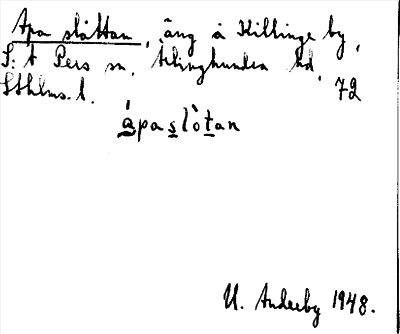 Apa slåttan, äng å Killinge by,
S:t Pers sn, Ärlinghundra hd,
Sthlms. l. 72
ápaslòtan
U. Anderby 1948.